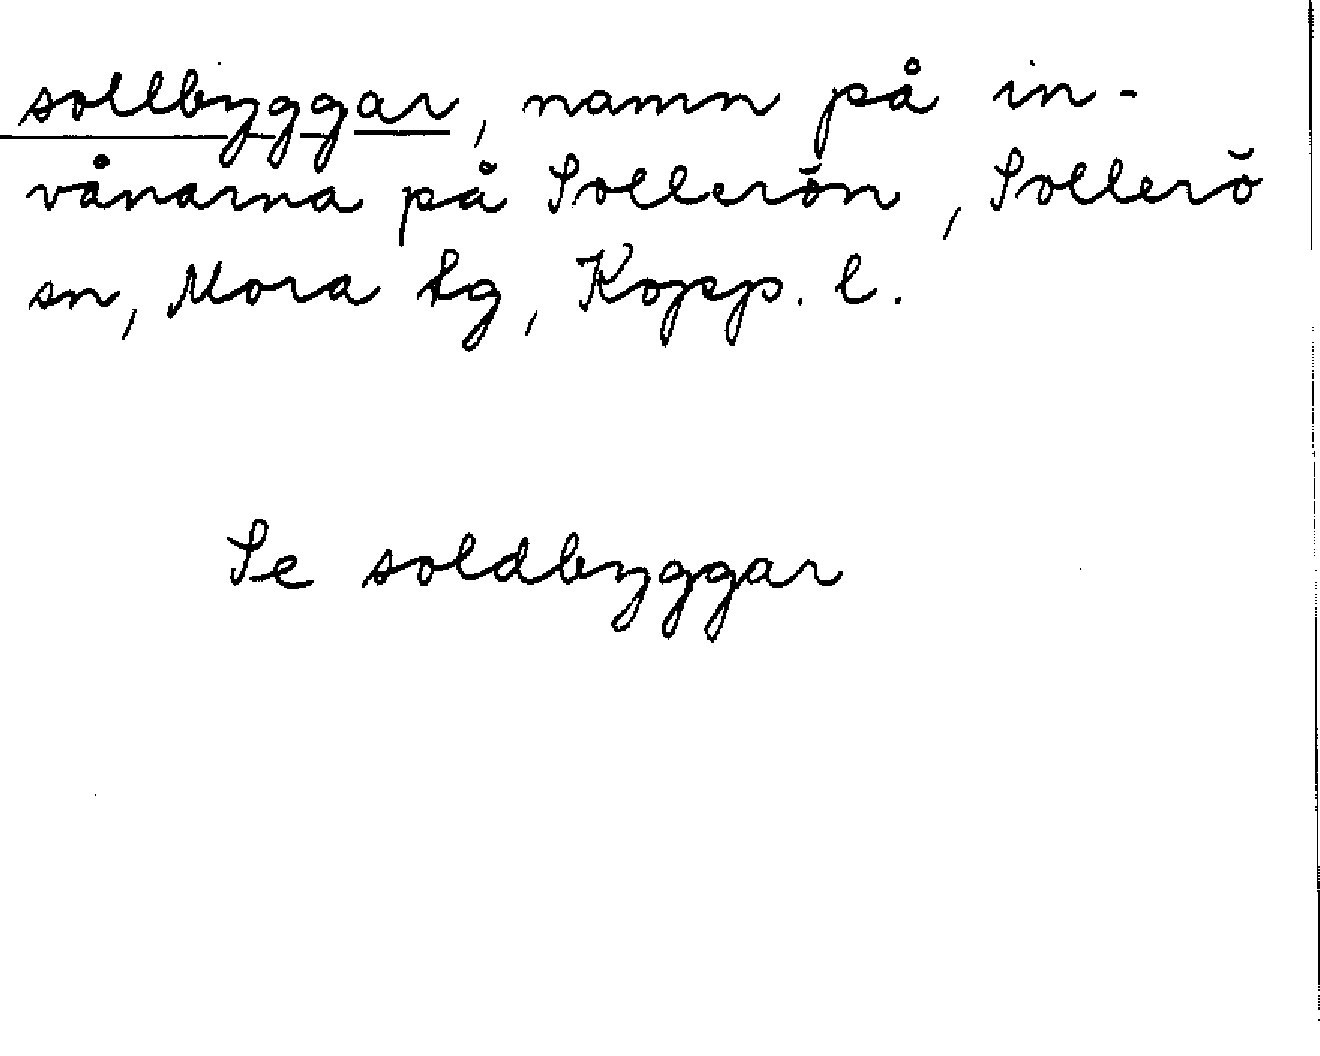 sollbyggar, namn på in-
vånarna på Sollerön, Sollerö
sn, Mora tg, Kopp. l.
Se soldbyggar